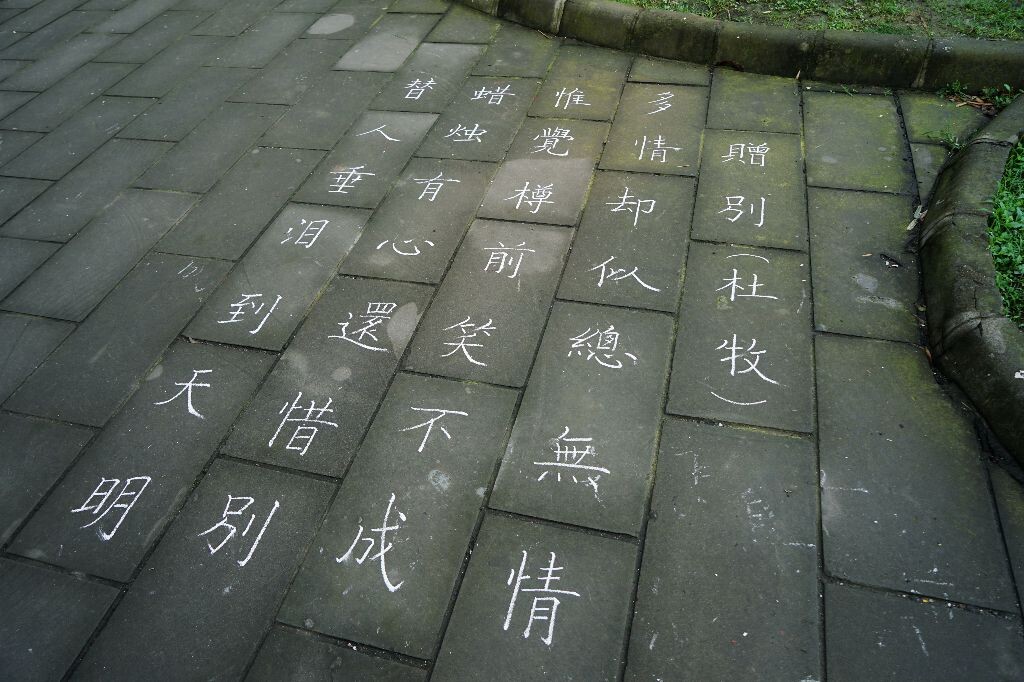 贈別(杜牧)
多情却似總無情
惟覺樽前笑不成
蜡烛有心還惜別
替人垂泪到天明